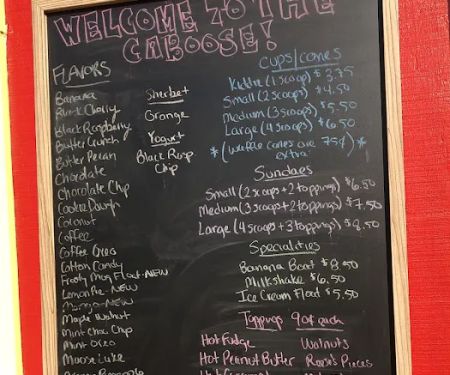 WELCOME TO THE
CABOOSE!
FLAVORS
Banana
Black Cherry
Black Raspberry
Butter Crunch
Butter Pecan
Chocolate
Chocolate Chip
Cookie Dough
Coconut
Coffee
Coffee Oreo
Cotton Candy
Frosty Mug Float-NEW
Lemon Pie-NEW
Mango-NEW
Maple Walnut
Mint Choc Chip
Mint Oreo
Moose Lake
Sherbet
Orange
Yogurt
Black Rasp
Chip
CUPS/CONES
Kiddie (1 scoop) $3.75
Small (2 scoops) $4.50
Medium (3 scoops) $5.50
Large (4 scoops) $6.50
* (waffle cones are 75¢) *
extra
Sundaes
Small (2 scoops + 2 toppings) $6.50
Medium (3 scoops + 2 toppings) $7.50
Large (4 scoops + 3 toppings) $8.50
Specialties
Banana Boat $8.50
Milkshake $6.50
Ice Cream Float $5.50
Toppings 90¢ each
Hot Fudge Walnuts
Hot Peanut Butter Reese's Pieces